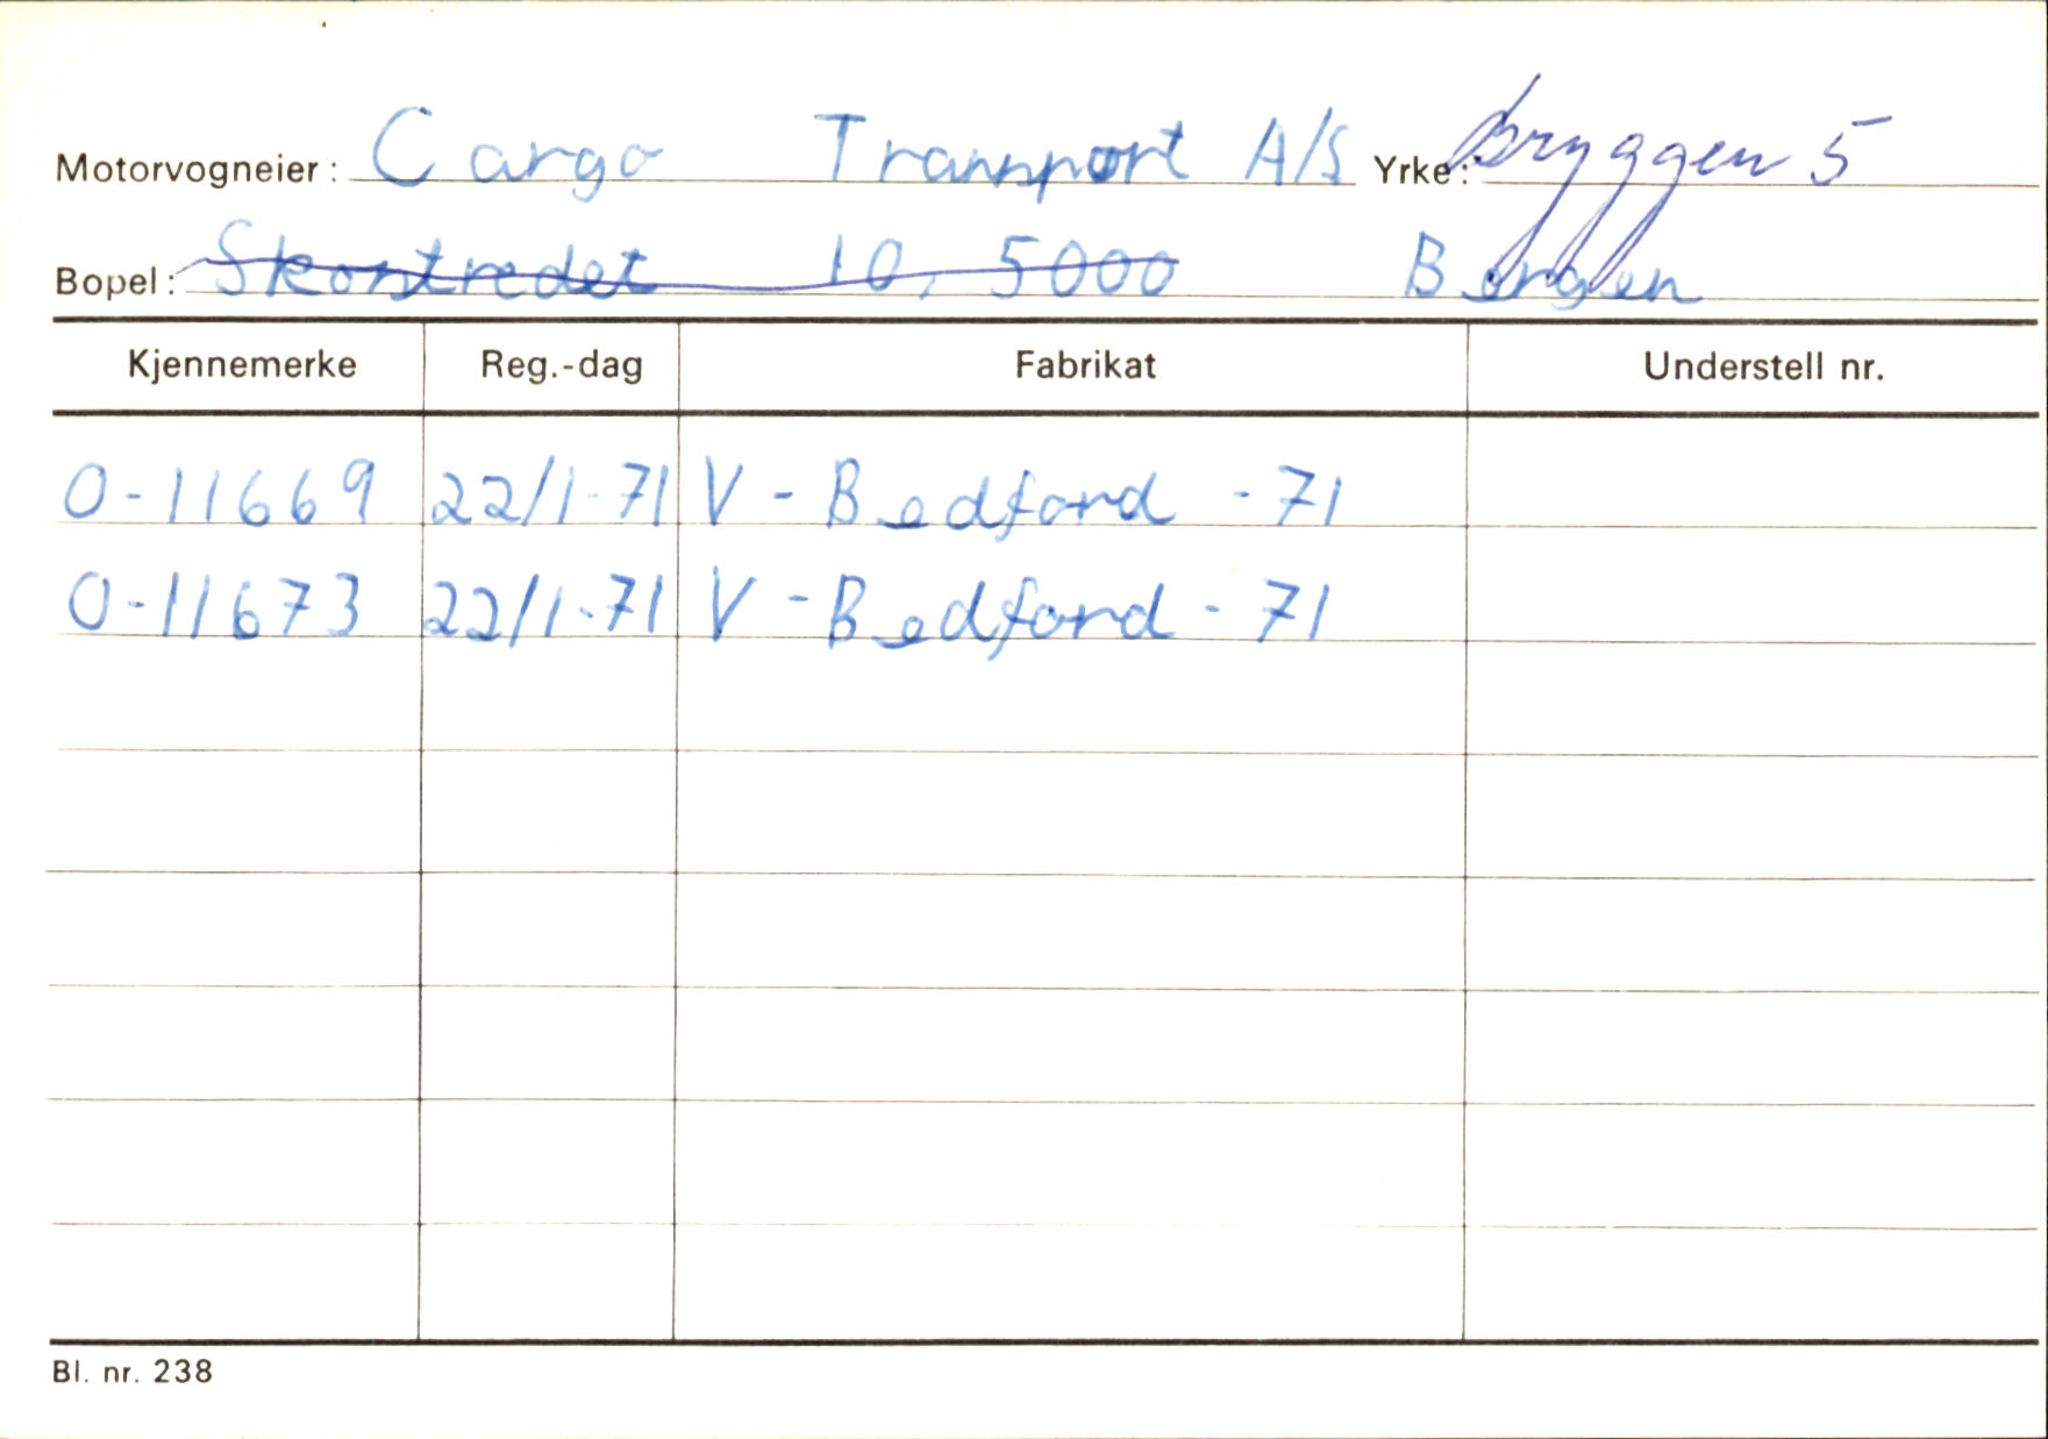 Motorvogneier: Cargo Transport A/S Yrke: Bryggen 5
Bopel: Skostredet 10, 5000 Bergen
Kjennemerke Reg.-dag Fabrikat Understell nr.
O-11669 22/1-71 V - Bedford - 71
O-11673 22/1-71 V - Bedford - 71
Bl. nr. 238